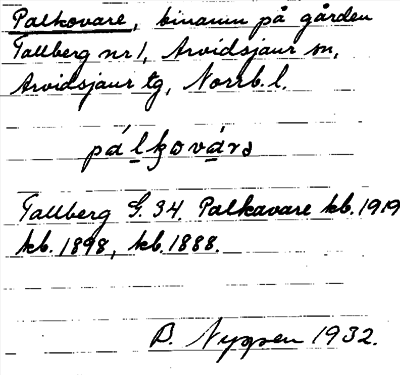 Palkovare, binamn på gården
Tallberg nr 1, Arvidsjaur sn,
Arvidsjaur tg, Norrb. l.
Tallberg G. 34. Palkavare kb. 1919
kb. 1898, kb. 1888.
B. Nyqsen 1932.